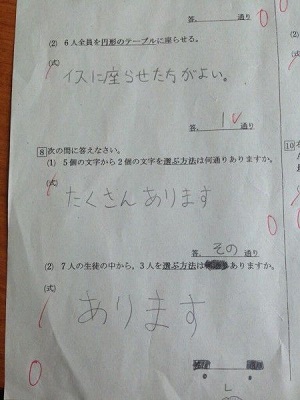 答. 通り 0
(2) 6人全員を円形のテーブルに座らせる。
(式)
イスに座らせた方がよい。
答. 1 通り
8 次の問に答えなさい。 10
(1) 5個の文字から2個の文字を選ぶ方法は何通りありますか。
(式)
たくさんあります
0
答. その 通り
(2) 7人の生徒の中から、3人を選ぶ方法は ありますか。
(式)
あります
0